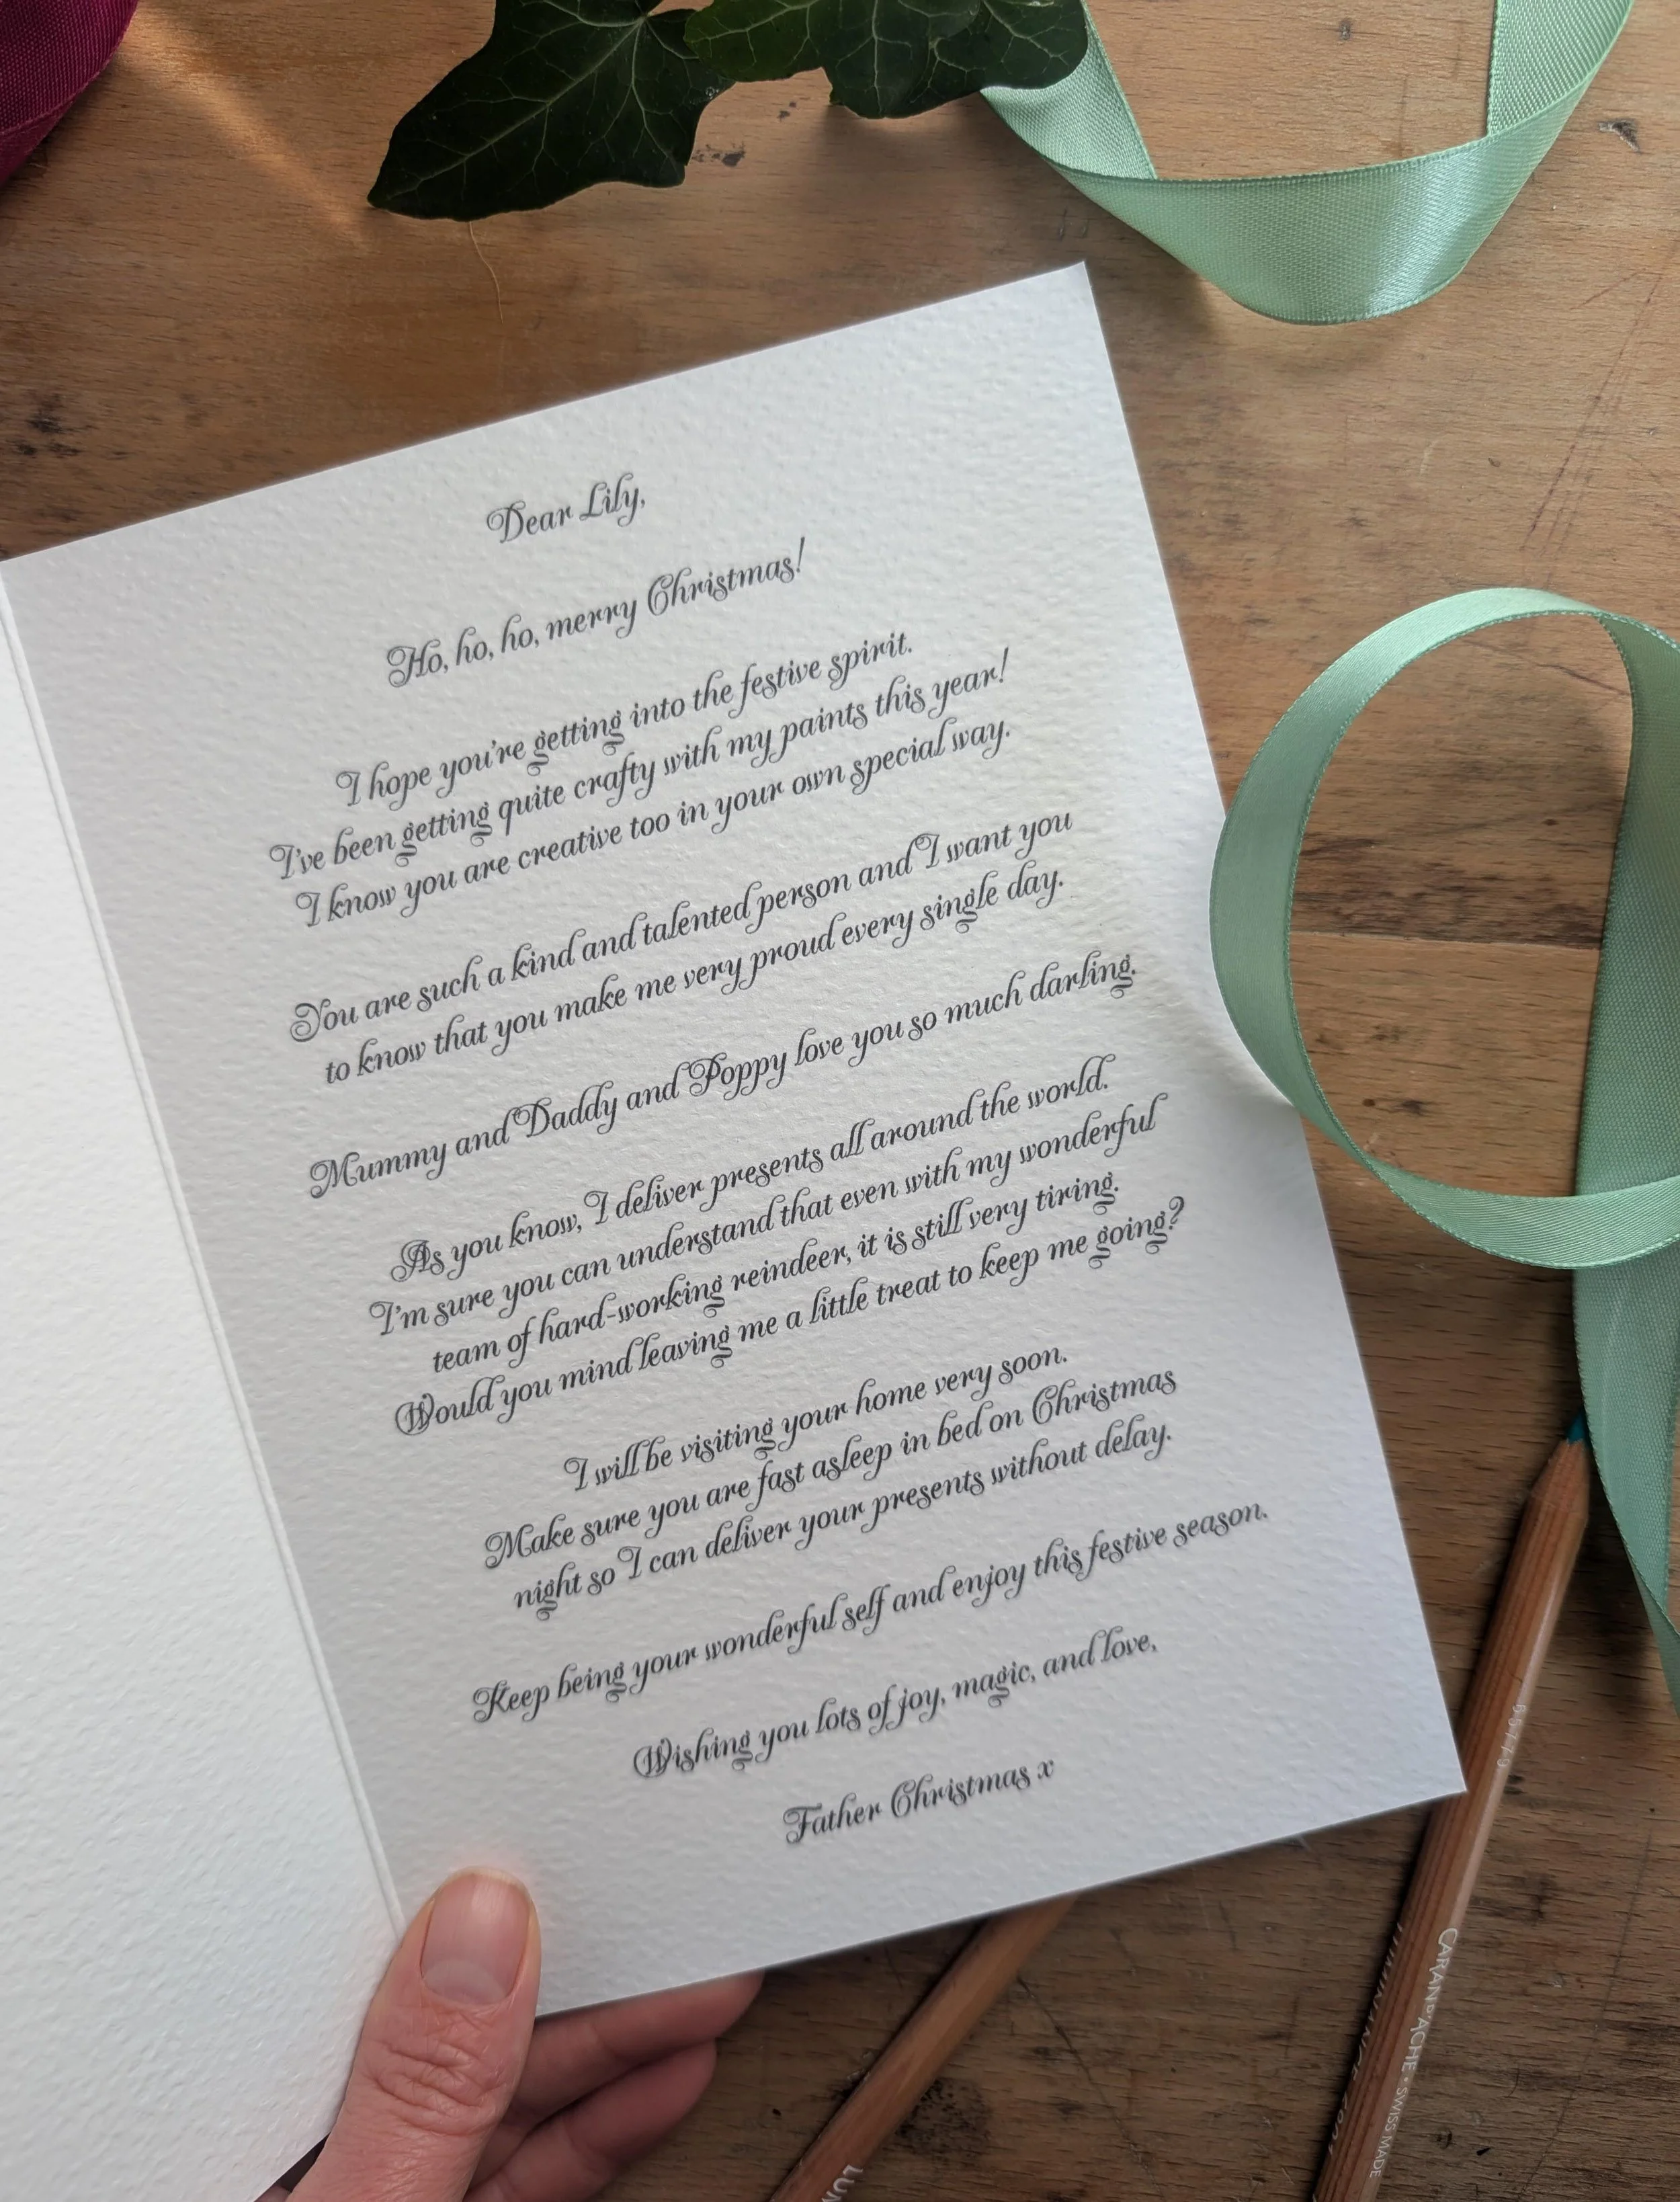 Dear Lily,
Ho, ho, ho, merry Christmas!
I hope you're getting into the festive spirit.
I've been getting quite crafty with my paints this year!
I know you are creative too in your own special way.
You are such a kind and talented person and I want you
to know that you make me very proud every single day.
Mummy and Daddy and Poppy love you so much darling.
As you know, I deliver presents all around the world.
I'm sure you can understand that even with my wonderful
team of hard-working reindeer, it is still very tiring.
Would you mind leaving me a little treat to keep me going?
I will be visiting your home very soon.
Make sure you are fast asleep in bed on Christmas
night so I can deliver your presents without delay.
Keep being your wonderful self and enjoy this festive season.
Wishing you lots of joy, magic, and love,
Father Christmas x
CARAN D'ACHE • SWISS MADE